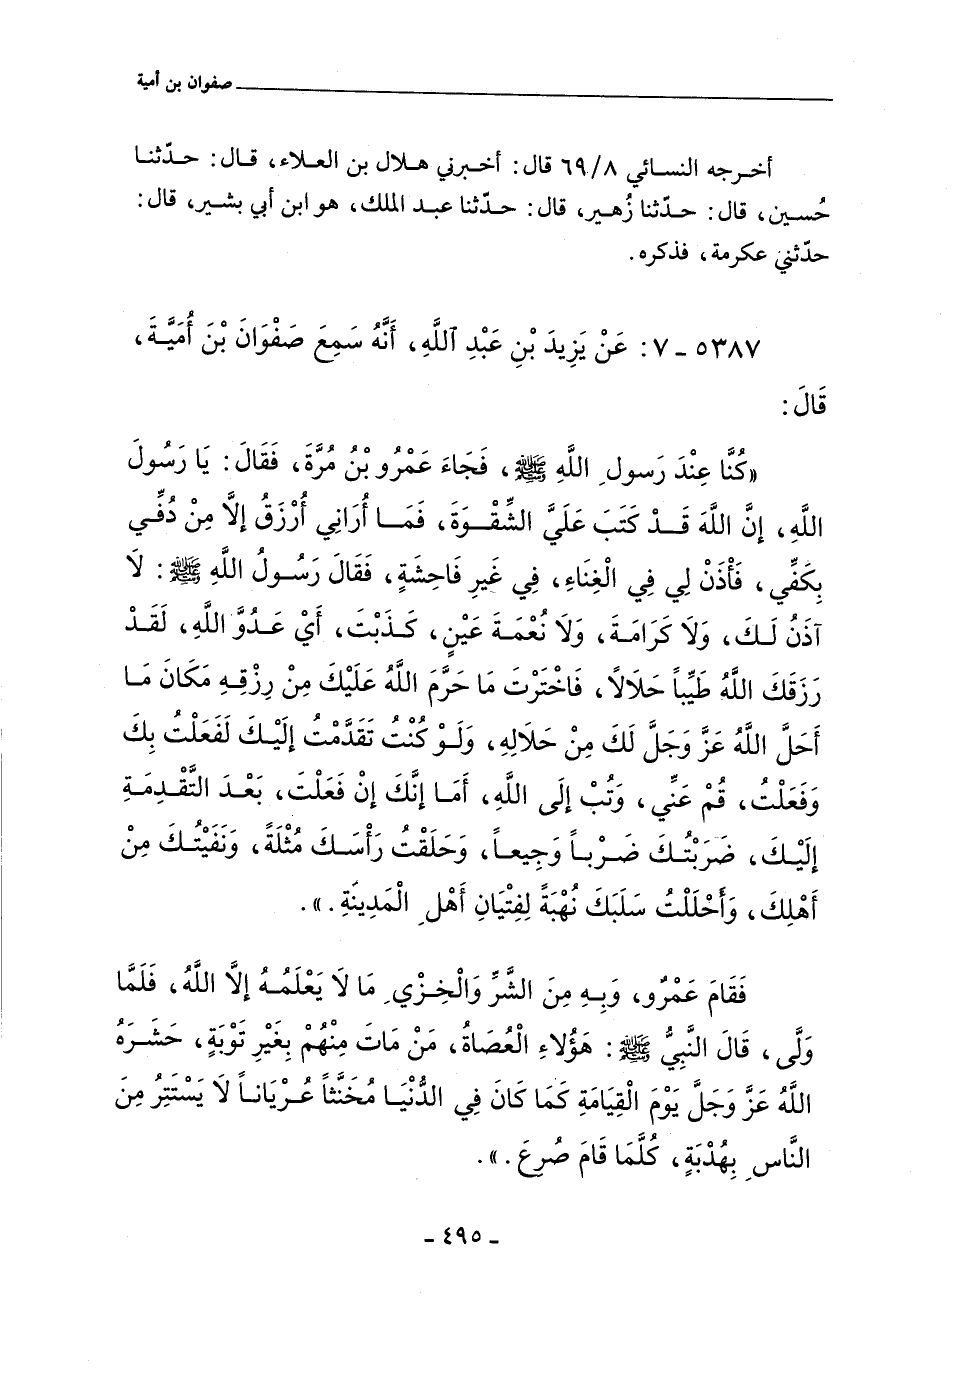 صفوان بن أمية
أخـرجه النسـائي ٦٩/٨ قال: أخـبرني هلال بن العلاء، قـال: حـدّثنـا
حُسـين، قال: حـدّثنا زُهـير، قال: حدّثنا عبـد الملك، هو ابن أبي بشـير، قال:
حدّثني عكرمة، فذكره.
٥٣٨٧ ـ ٧: عَنْ يَزِيدَ بْنِ عَبْدِ ٱللَّهِ، أَنَّهُ سَمِعَ صَفْوَانَ بْنَ أُمَيَّـةَ،
قَالَ:
«كُنَّا عِنْدَ رَسولِ اللَّهِ ﷺ، فَجَاءَ عَمْرُو بْنُ مُرَّةَ، فَقَالَ: يَا رَسُولَ
اللَّهِ، إِنَّ اللَّهَ قَـدْ كَتَبَ عَلَيَّ الشِّقْـوَةَ، فَمَـا أُرَانِي أُرْزَقُ إِلَّا مِنْ دُفِّي
بِكَفِّي، فَأْذَنْ لِي فِي الْغِنَاءِ، فِي غَيرِ فَاحِشَةٍ، فَقَالَ رَسُـولُ اللَّهِ ﷺ: لَا
آذَنُ لَـكَ، وَلَا كَرَامَـةَ، وَلَا نُعْمَـةَ عَيْنٍ، كَـذَبْتَ، أَيْ عَـدُوَّ اللَّهِ، لَقَـدْ
رَزَقَكَ اللَّهُ طَيِّباً حَلَالاً، فَاخْتَرْتَ مَا حَرَّمَ اللَّهُ عَلَيْكَ مِنْ رِزْقِـهِ مَكَانَ مَـا
أَحَلَّ اللَّهُ عَزَّ وَجَلَّ لَكَ مِنْ حَلَالِهِ، وَلَـوْ كُنْتُ تَقَدَّمْتُ إِلَيْـكَ لَفَعَلْتُ بِكَ
وَفَعَلْتُ، قُمْ عَنِّي، وَتُبْ إِلَى اللَّهِ، أَمَا إِنَّكَ إِنْ فَعَلْتَ، بَعْـدَ التَّقْـدِمَةِ
إِلَيْـكَ، ضَرَبْتُـكَ ضَـرْبـاً وَجِيعـاً، وَحَلَقْتُ رَأْسَـكَ مُثْلَةً، وَنَفَيْتُـكَ مِنْ
أَهْلِكَ، وَأَحْلَلْتُ سَلَبَكَ نُهْبَةً لِفِتْيَانِ أَهْلِ الْمَدِينَةِ.».
فَقَامَ عَمْرٌو، وَبِـهِ مِنَ الشَّرِّ وَالْخِـزْيِ مَا لَا يَعْلَمُـهُ إِلَّا اللَّهُ، فَلَمَّا
وَلَّى، قَالَ النَّبِيُّ ﷺ: هَؤُلَاءِ الْعُصَاةُ، مَنْ مَاتَ مِنْهُمْ بِغَيْرِ تَوْبَةٍ، حَشَـرَهُ
اللَّهُ عَزَّ وَجَلَّ يَوْمَ الْقِيَامَةِ كَمَا كَانَ فِي الدُّنْيَـا مُخَنَّثاً عُـرْيَانـاً لَا يَسْتَتِرُ مِنَ
النَّاسِ بِهُدْبَةٍ، كُلَّمَا قَامَ صُرِعَ.».
ـ ٤٩٥ ـ